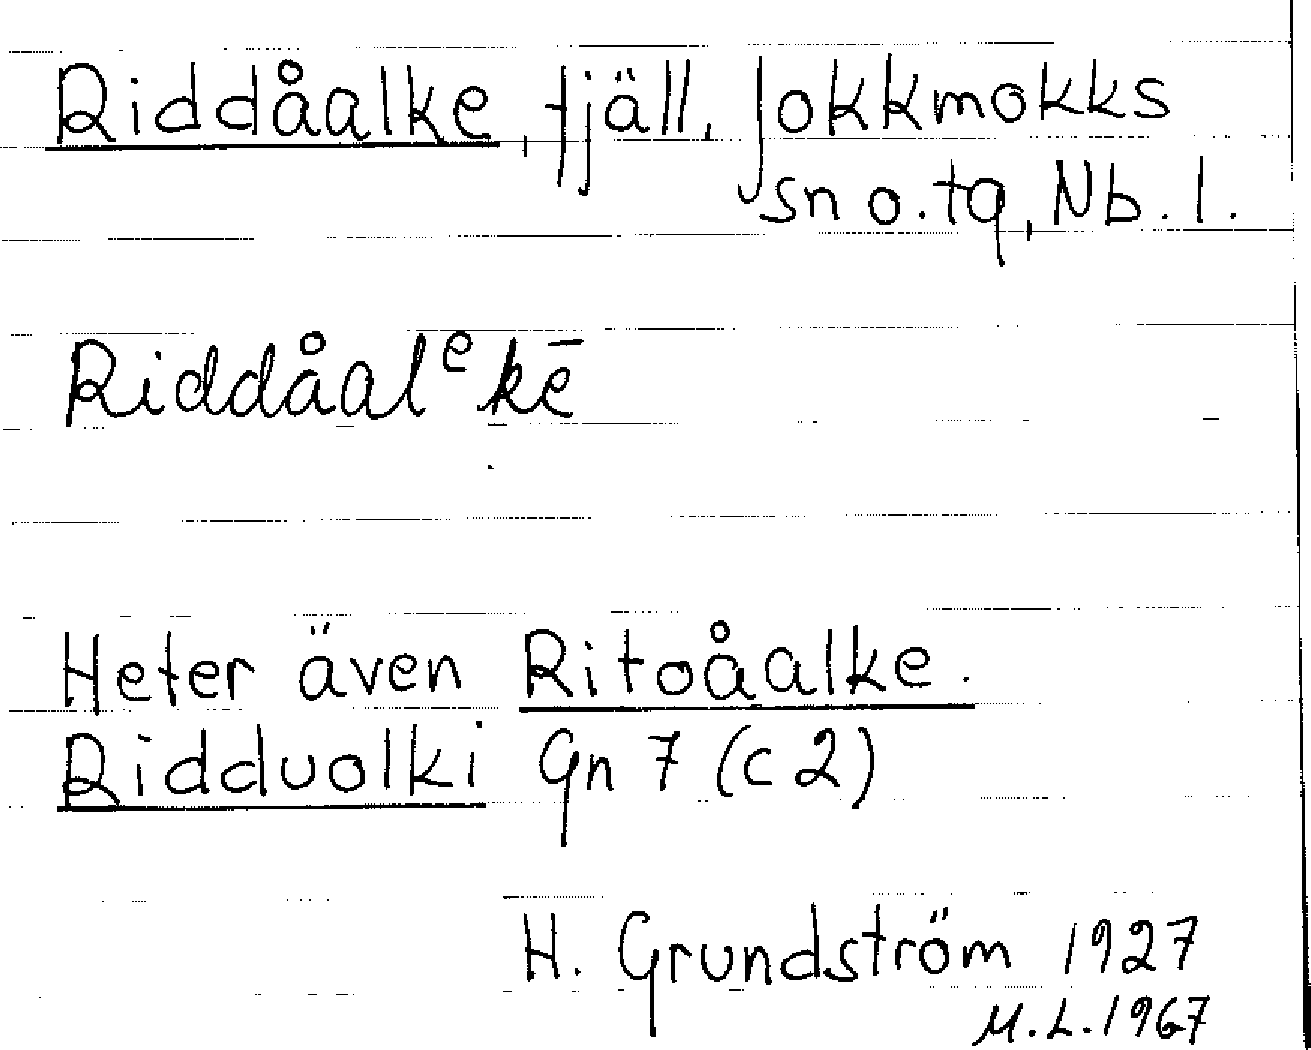 Riddåalke, fjäll, Jokkmokks
sn o. tg, Nb. l.
Riddåalᵉkē
Heter även Ritoåalke.
Ridduolki Gn 7 (c 2)
H. Grundström 1927
M.L. 1967